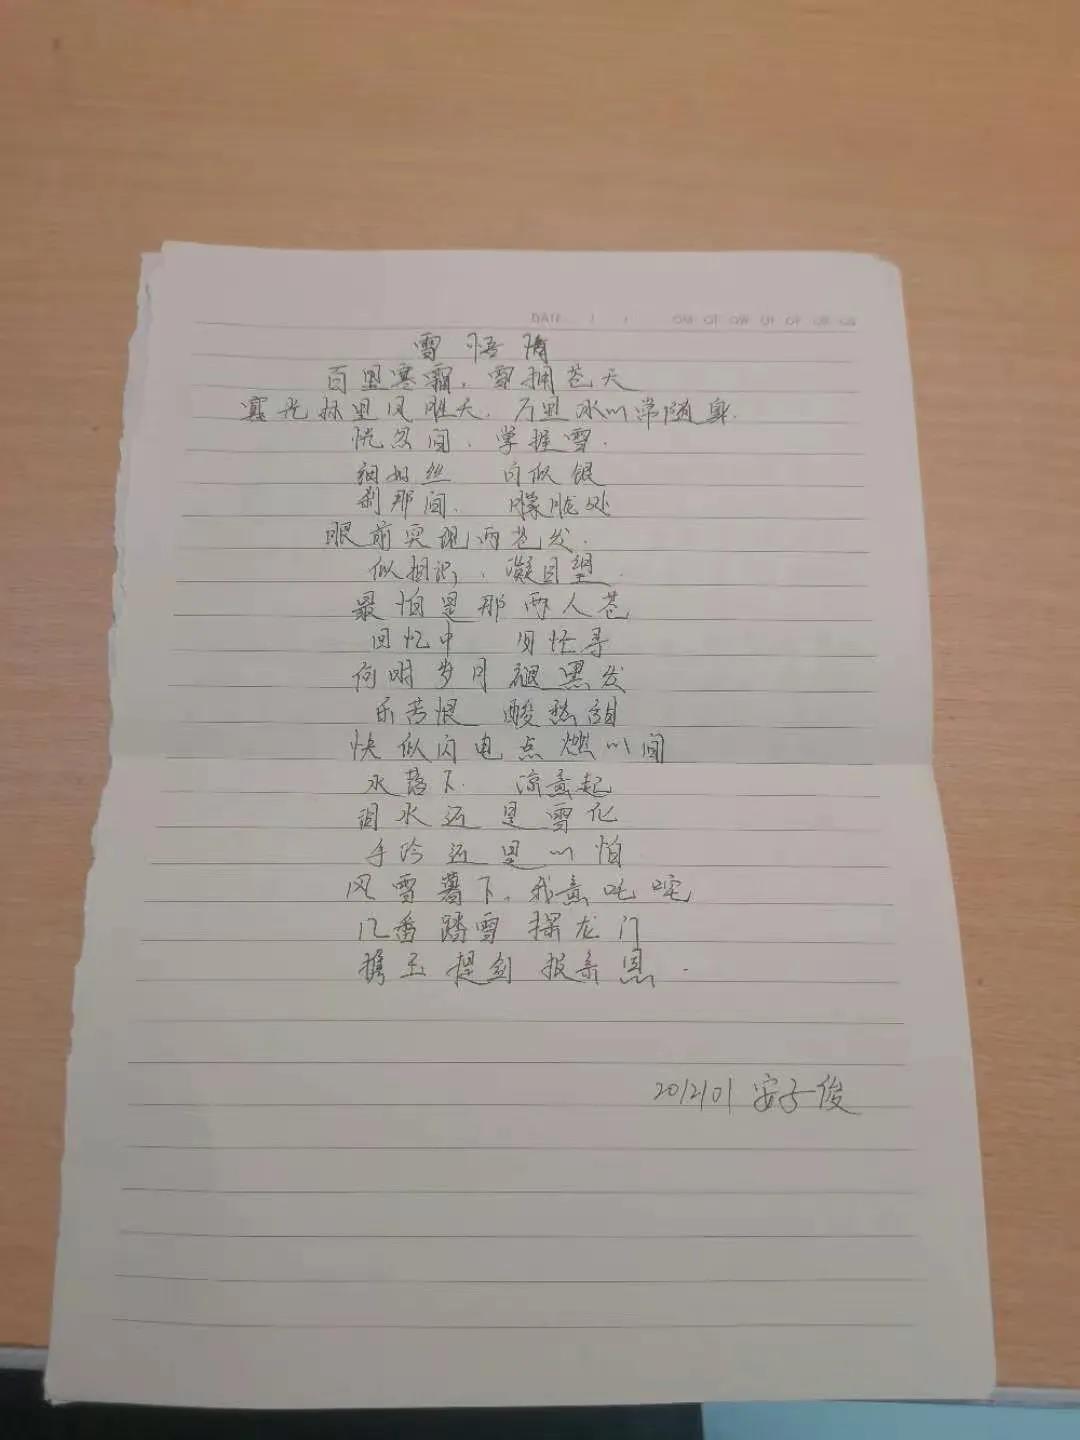 DATE / /
雪悟情
百里寒霜,雪拥苍天
寒光林里风胜天,万里冰川常随身.
恍忽间,掌握雪.
细如丝 白似银
刹那间. 朦胧处
眼前突现两苍发.
似相识,凝目望.
最怕是那两人苍
回忆中 寻
何时岁月褪黑发
乐苦恨 酸愁甜
快似闪电点燃心间
水落下. 凉意起
泪水还是雪化
手冷还是心怕
风雪落下,我意叱咤
几番踏雪探龙门
携玉提剑报亲恩.
2012101 安子俊